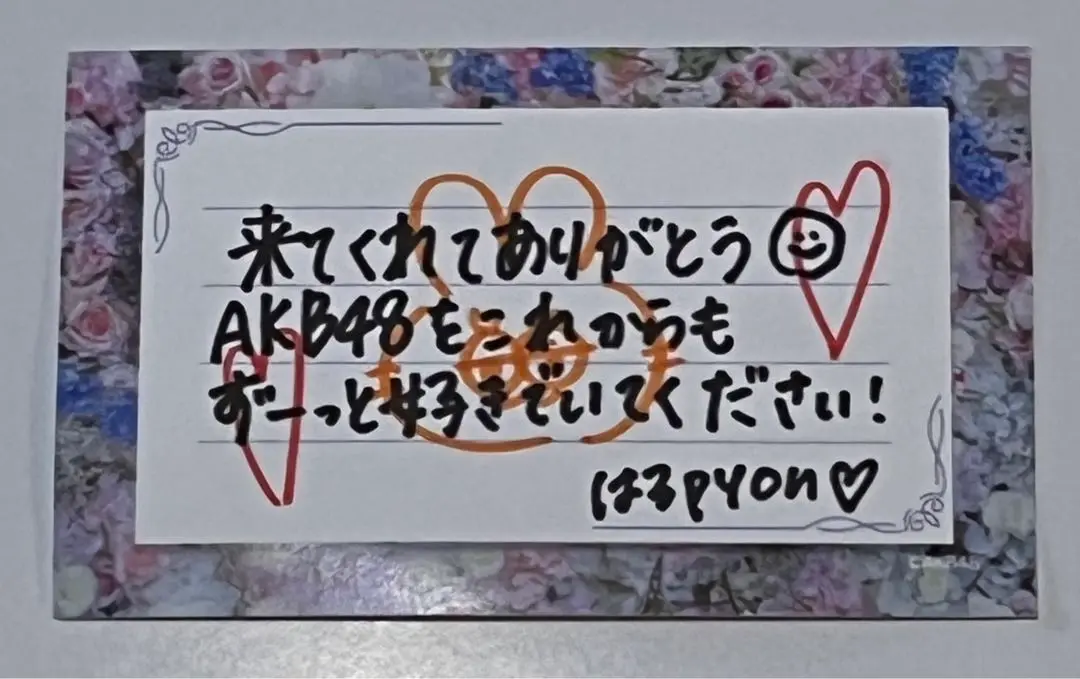 来てくれてありがとう
AKB48をこれからも
ずーっと好きでいてください!
はるpyon♡